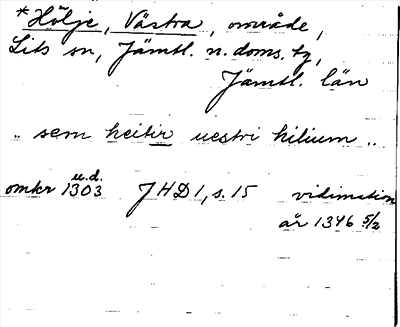 *Hölje, Västra, område,
Lits sn, Jämtl. n. doms. tg,
Jämtl. län
.. sem heitir uestri hilium ..
u.d.
omkr 1303 JHD 1, s. 15 vidimation
år 1346 5/2